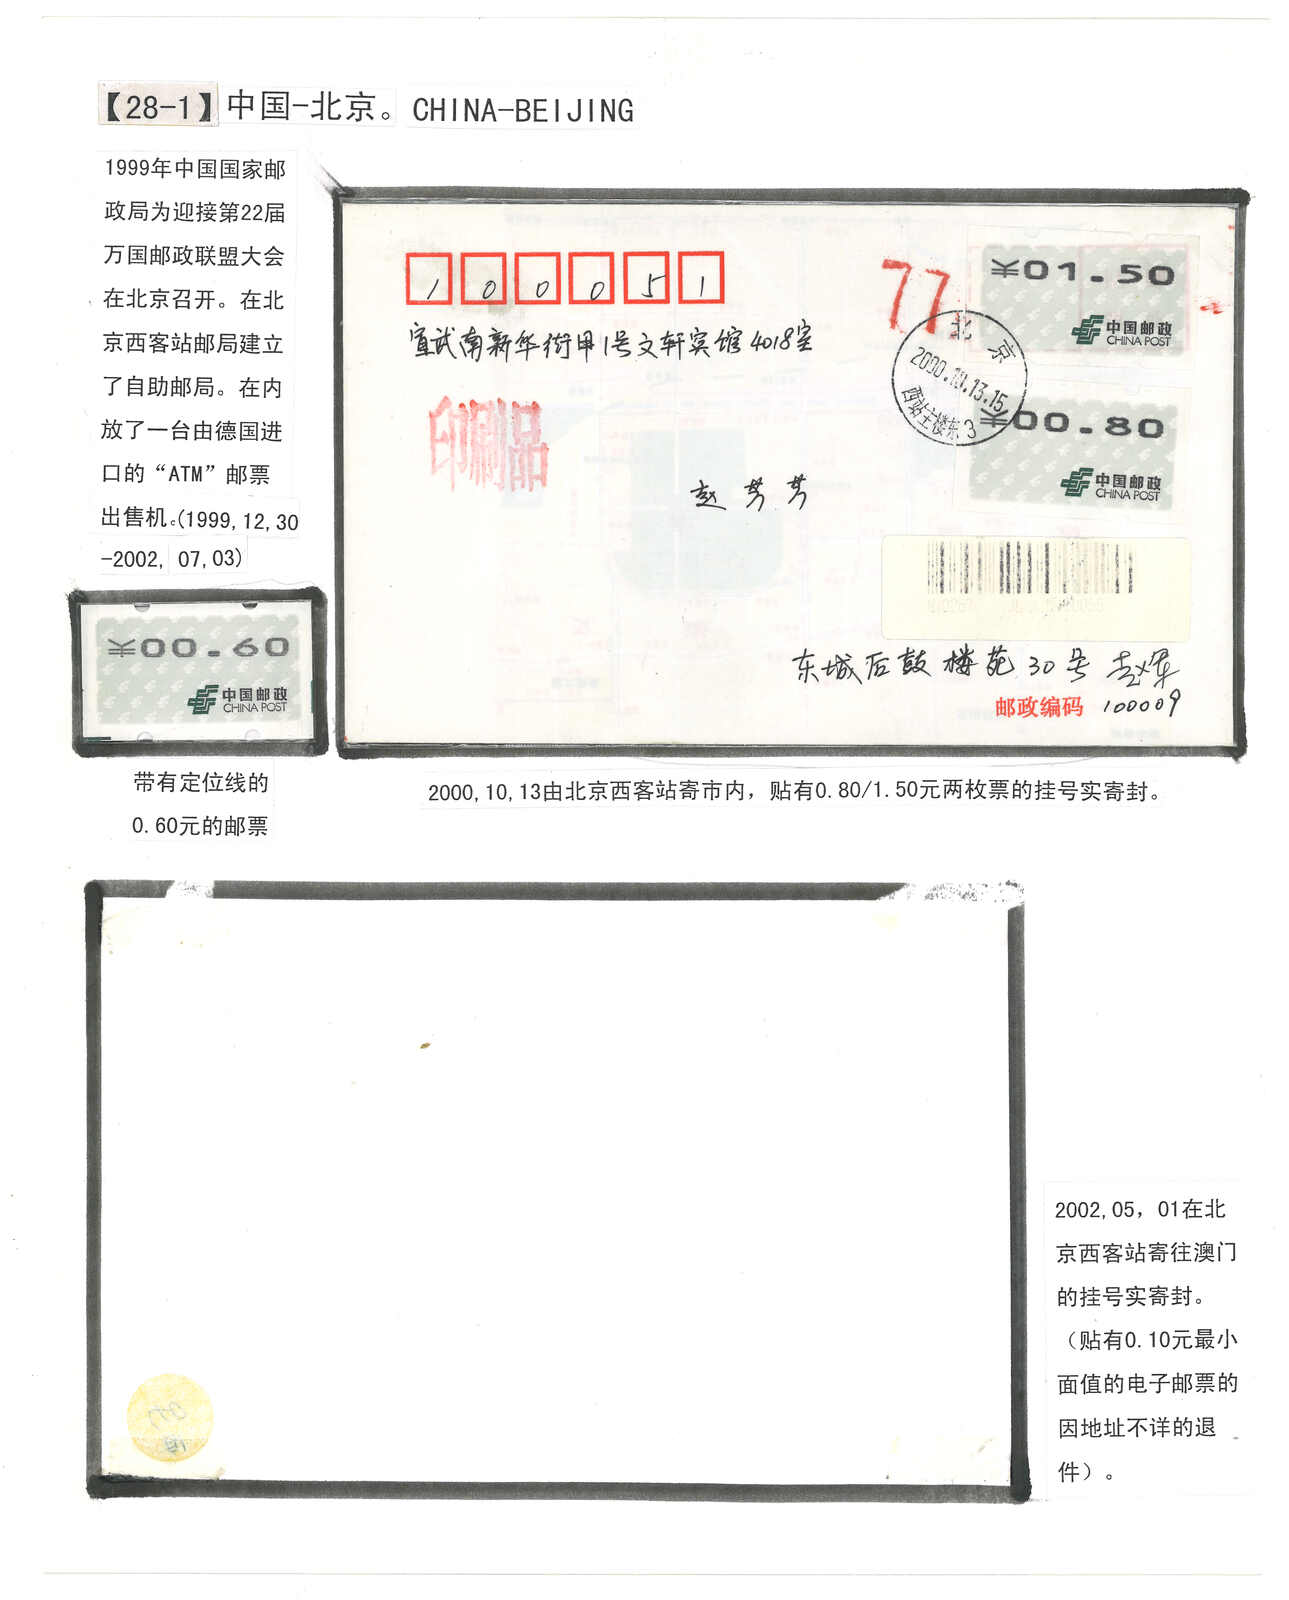 【28-1】中国-北京。CHINA-BEIJING
1999年中国国家邮
政局为迎接第22届
万国邮政联盟大会
在北京召开。在北
京西客站邮局建立
了自助邮局。在内
放了一台由德国进
口的“ATM”邮票
出售机。(1999,12,30
-2002, 07,03)
¥00.60
中国邮政
CHINA POST
带有定位线的
0.60元的邮票
100051
宣武南新华街甲1号文轩宾馆4018室
印刷品
赵芳芳
77
¥01.50
中国邮政
CHINA POST
北京
2000.10.13.15
西站主楼东3
¥00.80
中国邮政
CHINA POST
东城后鼓楼苑30号
邮政编码 100009
2000,10,13由北京西客站寄市内，贴有0.80/1.50元两枚票的挂号实寄封。
2002,05，01在北
京西客站寄往澳门
的挂号实寄封。
（贴有0.10元最小
面值的电子邮票的
因地址不详的退
件）。